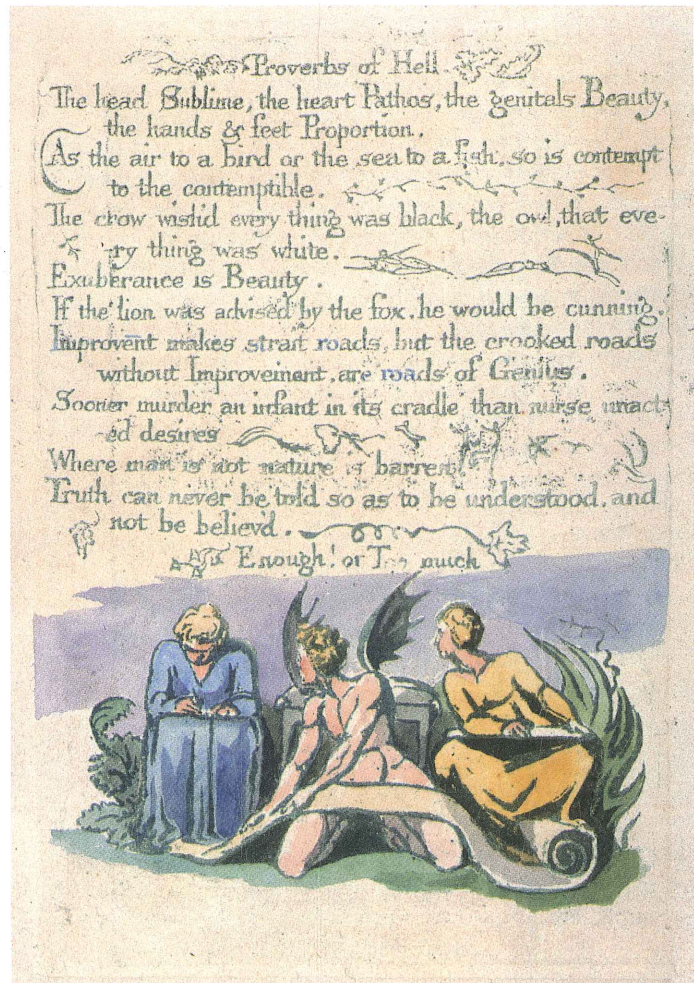 Proverbs of Hell
The head Sublime, the heart Pathos, the genitals Beauty,
the hands & feet Proportion.
As the air to a bird or the sea to a fish, so is contempt
to the contemptible.
The crow wish'd every thing was black, the owl, that eve-
-ry thing was white.
Exuberance is Beauty.
If the lion was advised by the fox, he would be cunning.
Improvent makes strait roads, but the crooked roads
without Improvement, are roads of Genius.
Sooner murder an infant in its cradle than nurse unact-
-ed desires
Where man is not nature is barren
Truth can never be told so as to be understood, and
not be believ'd.
Enough! or Too much